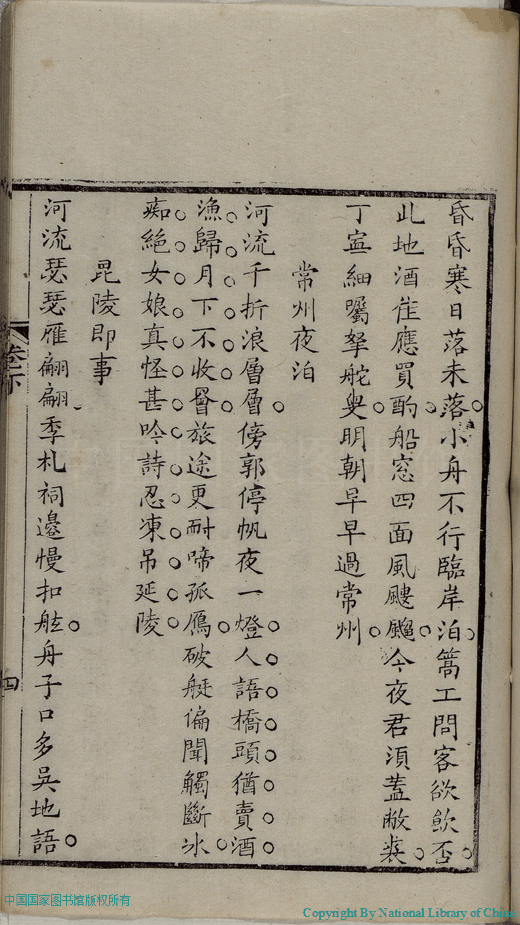 昏昏寒日落未落小舟不行臨岸泊篙工問客欲飲否
此地酒佳應買酌船窓四面風颼颼今夜君須蓋敝裘
丁寍細囑拏舵叟明朝早早過常州
常州夜泊
河流千折浪層層傍郭停帆夜一燈人語橋頭猶賣酒
漁歸月下不收罾旅途更耐啼孤鴈破艇偏聞觸斷冰
痴絕女娘真怪甚吟詩忍凍吊延陵
毘陵即事
河流瑟瑟雁翩翩季札祠邉慢扣舷舟子口多吳地語
卷下
四
中国国家图书馆版权所有
Copyright By National Library of China